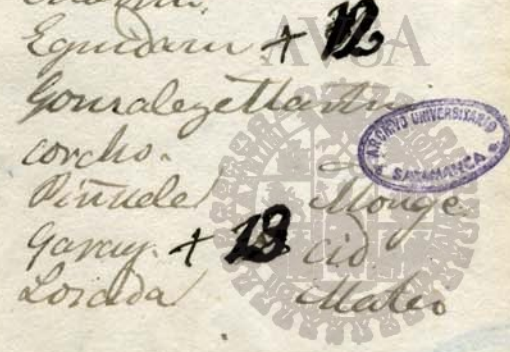 Eguidazu + 12
Gonzalez Martin
corcho.
Piñuela Monge
Garay. + 13 cid.
Losada Mateo
ARCHIVO UNIVERSITARIO
SALAMANCA
AUSA